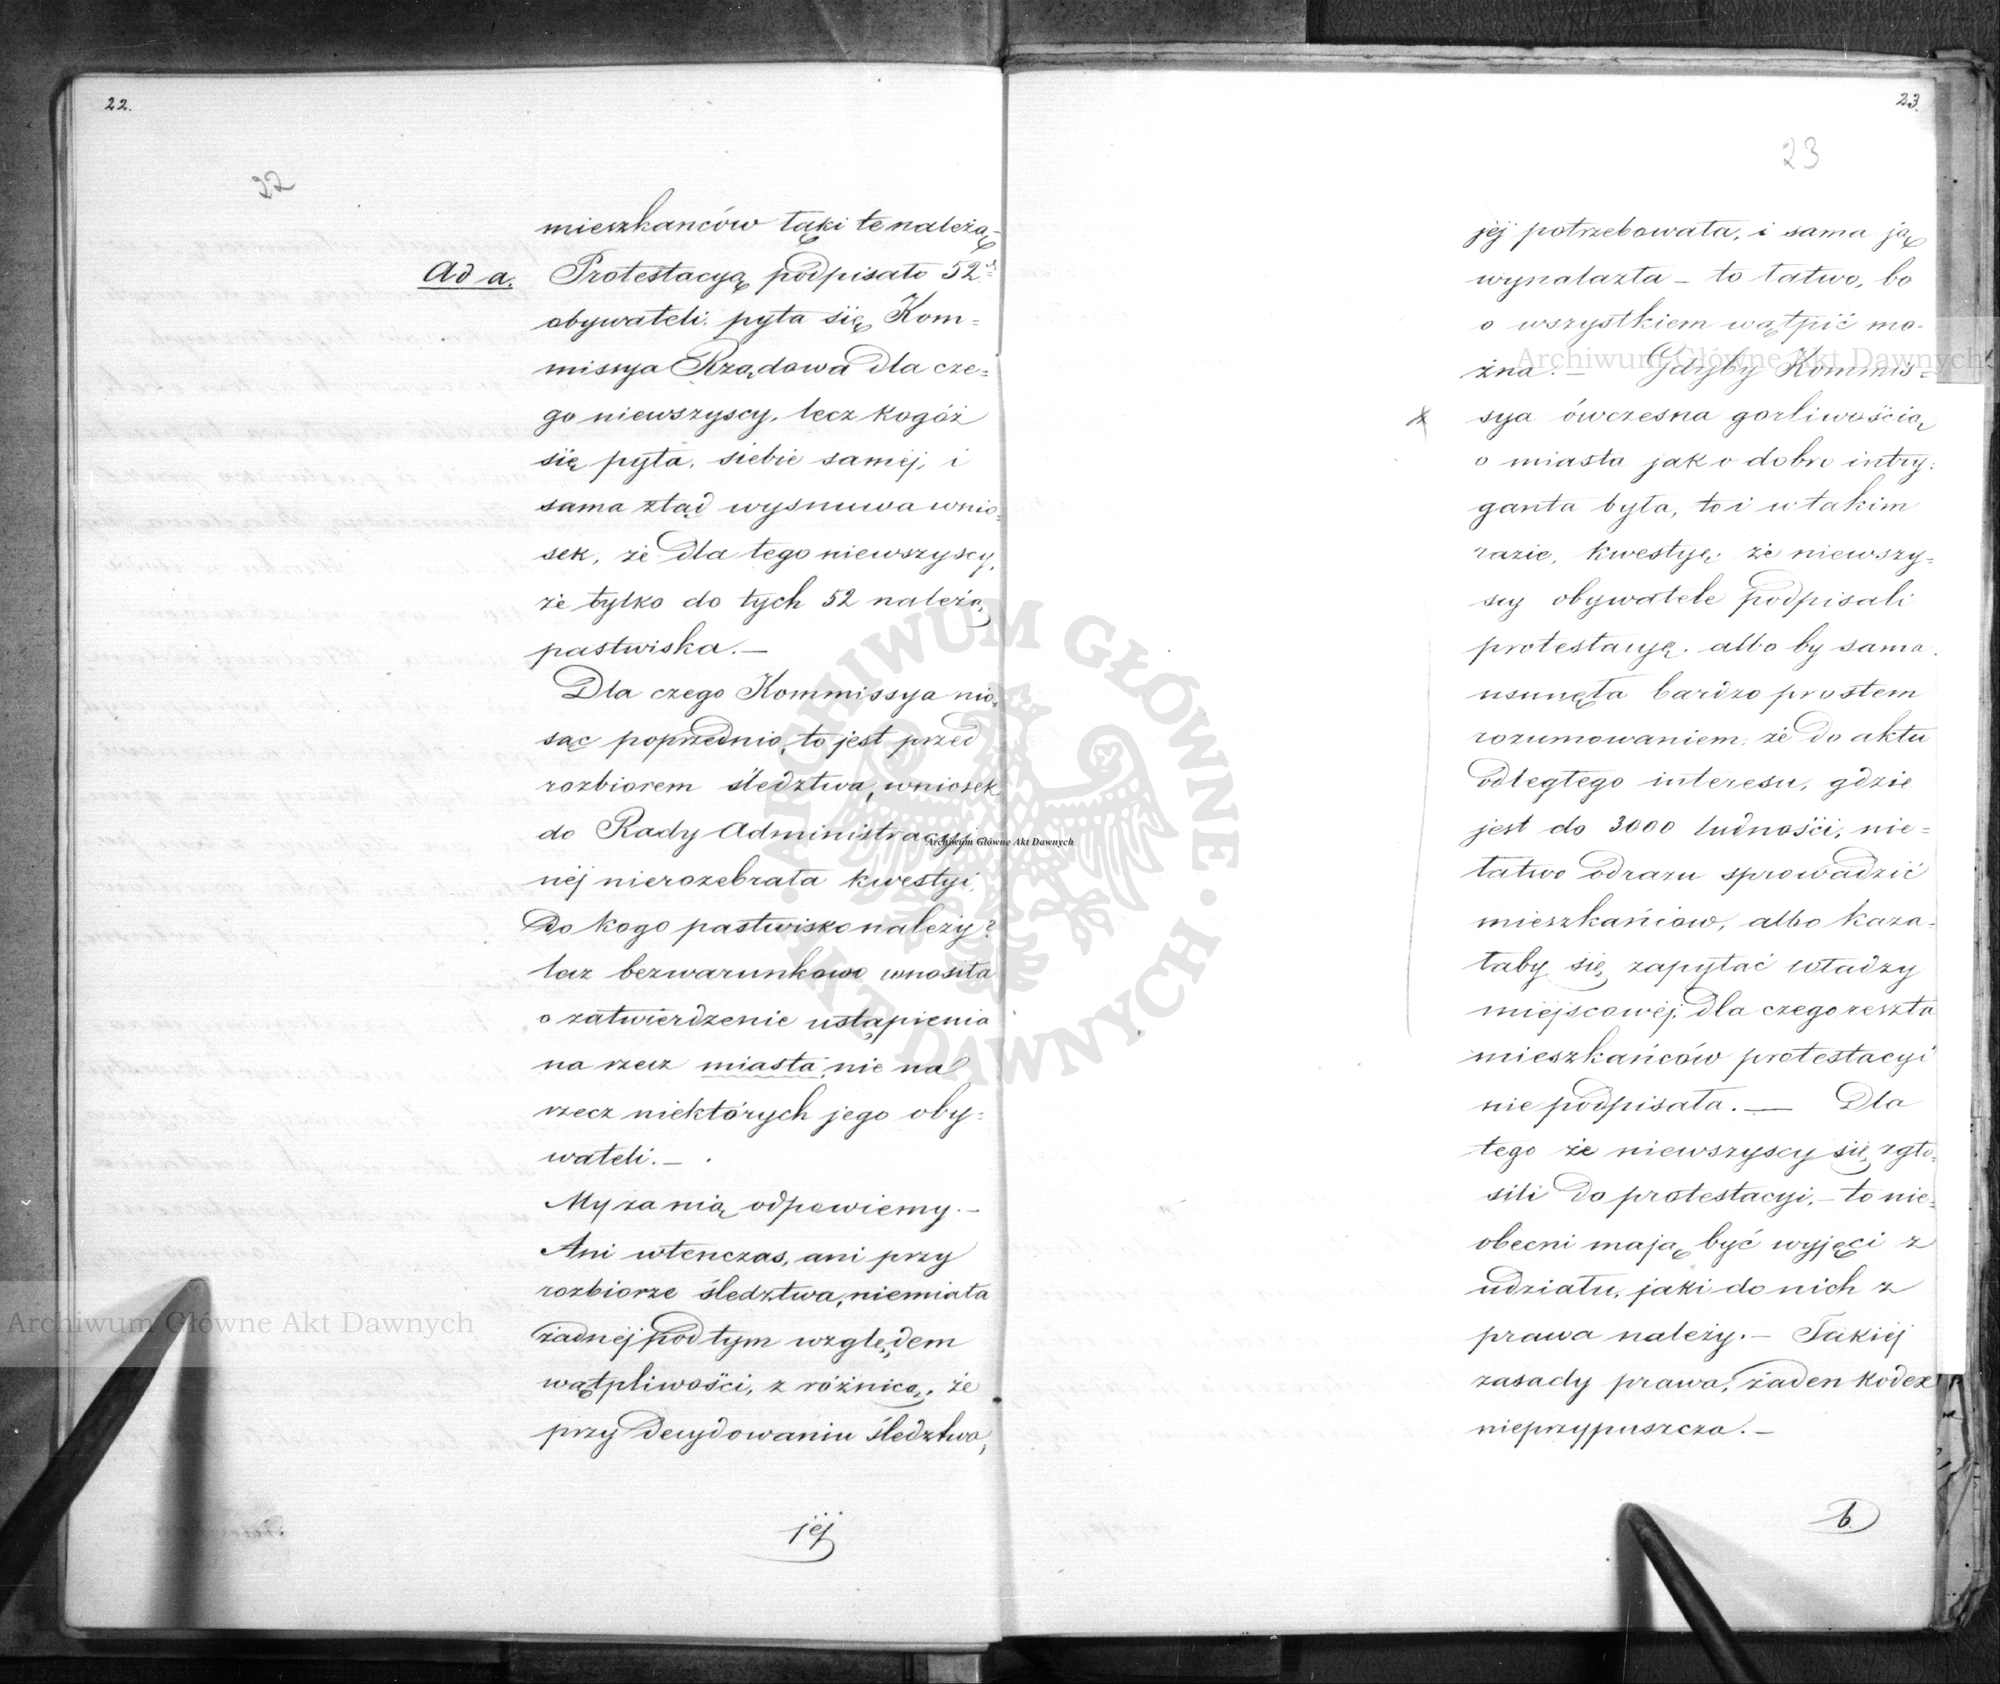 22.
22
mieszkanców taki te należą
Ad a. Protestacyą podpisało 52
obywateli. pyta się Kom=
missya Rządowa dla cze=
go niewszyscy, lecz kogóż
się pyta, siebie saméj, i
sama ztąd wysnuwa wnio=
sek, że dla tego niewszyscy,
że tylko do tych 52 należą
pastwiska. —
Dla czego Kommissya nio=
sąc poprzednio, to jest przed
rozbiorem śledztwa, wniosek
do Rady Administracyj
néj nierozebrała kwestyi,
Do kogo pastwisko należy?
lecz bezwarunkowo wnosiła
o zatwierdzenie ustąpienia
na rzecz miasta, nie na
rzecz niektórych jego oby=
wateli. —
My za nią odpowiemy. —
Ani wtenczas, ani przy
rozbiorze śledztwa, niemiała
żadnéj pod tym względem
wątpliwości, z różnicą, że
przy decydowaniu śledztwa,
jéj
23.
23
jéj potrzebowała, i sama ją
wynalazła — to łatwo, bo
o wszystkiem wątpić mo=
żna. — Gdyby Kommis=
sya ówczesna gorliwością
o miasta jak o dobro intry=
ganta była, to i w takim
razie, kwestyę, że niewszy=
scy obywatele podpisali
protestacyę, albo by sama
usunęła bardzo prostem
rozumowaniem, że do aktu
odległego interesu, gdzie
jest do 3000 ludności, nie=
łatwo odrazu sprowadzić
mieszkańców, albo kaza=
łaby się zapytać władzy
miéjscowéj, dla czego reszta
mieszkańców protestacyi
nie podpisała. — Dla
tego że niewszyscy się zgło=
sili do protestacyi, — to nie=
obecni mają być wyjęci z
udziału, jaki do nich z
prawa należy. — Takiéj
zasady prawa, żaden kodex
nieprzypuszcza. —
b.
Archiwum Główne Akt Dawnych
Archiwum Główne Akt Dawnych
Archiwum Główne Akt Dawnych
ARCHIWUM GŁÓWNE · AKT DAWNYCH ·